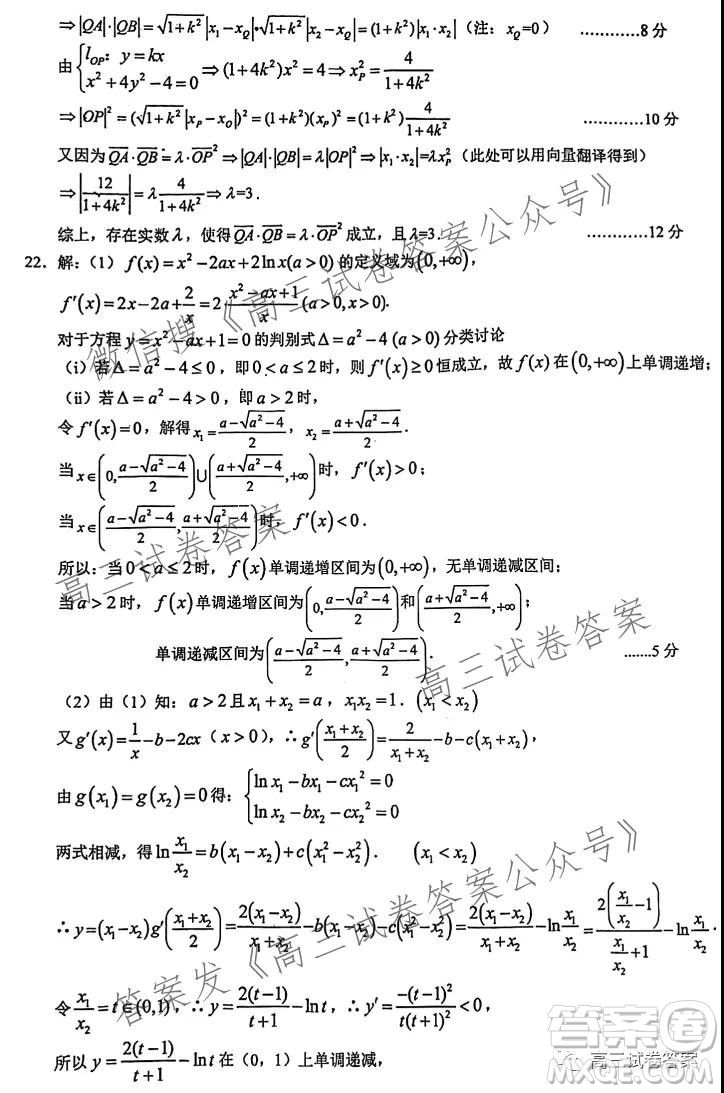 ⇒|QA|·|QB|=√(1+k²)|x₁-x_Q|·√(1+k²)|x₂-x_Q|=(1+k²)|x₁·x₂|（注：x_Q=0） …………8 分
由{l_OP：y=kx
x²+4y²-4=0 ⇒(1+4k²)x²=4⇒x_P²=4/(1+4k²)
⇒|OP|²=(√(1+k²)|x_P-x_O|)²=(1+k²)(x_P)²=(1+k²)4/(1+4k²) …………10 分
又因为QA·QB=λ·OP²⇒|QA|·|QB|=λ|OP|²⇒|x₁·x₂|=λx_P²（此处可以用向量翻译得到）
⇒|12/(1+4k²)|=λ4/(1+4k²)⇒λ=3．
综上，存在实数λ，使得QA·QB=λ·OP²成立，且λ=3． …………12 分
22．解：（1）f(x)=x²-2ax+2lnx(a>0)的定义域为(0,+∞)，
f′(x)=2x-2a+2/x=2(x²-ax+1)/x(a>0,x>0).
对于方程y=x²-ax+1=0的判别式Δ=a²-4(a>0)分类讨论
（i）若Δ=a²-4≤0，即0<a≤2时，则f′(x)≥0恒成立，故f(x)在(0,+∞)上单调递增；
（ii）若Δ=a²-4>0，即a>2时，
令f′(x)=0，解得x₁=(a-√(a²-4))/2，x₂=(a+√(a²-4))/2．
当x∈(0,(a-√(a²-4))/2)∪((a+√(a²-4))/2,+∞)时，f′(x)>0；
当x∈((a-√(a²-4))/2,(a+√(a²-4))/2)时，f′(x)<0．
所以：当0<a≤2时，f(x)单调递增区间为(0,+∞)，无单调递减区间；
当a>2时，f(x)单调递增区间为(0,(a-√(a²-4))/2)和((a+√(a²-4))/2,+∞)；
单调递减区间为((a-√(a²-4))/2,(a+√(a²-4))/2)． .......5 分
（2）由（1）知：a>2且x₁+x₂=a，x₁x₂=1．(x₁<x₂)
又g′(x)=1/x-b-2cx（x>0），∴g′((x₁+x₂)/2)=2/(x₁+x₂)-b-c(x₁+x₂)，
由g(x₁)=g(x₂)=0得：{lnx₁-bx₁-cx₁²=0
lnx₂-bx₂-cx₂²=0
两式相减，得ln(x₁/x₂)=b(x₁-x₂)+c(x₁²-x₂²)． (x₁<x₂)
∴y=(x₁-x₂)g′((x₁+x₂)/2)=2(x₁-x₂)/(x₁+x₂)-b(x₁-x₂)-c(x₁²-x₂²)=2(x₁-x₂)/(x₁+x₂)-ln(x₁/x₂)=2(x₁/x₂-1)/(x₁/x₂+1)-ln(x₁/x₂)．
令x₁/x₂=t∈(0,1)，∴y=2(t-1)/(t+1)-lnt，∴y′=-(t-1)²/(t(t+1)²)<0，
所以y=2(t-1)/(t+1)-lnt在（0，1）上单调递减，
微信搜《高三试卷答案公众号》
高三试卷答案
高三试卷答案
答案发《高三试卷答案公众号》
高三试卷答案
答案圈
MXQE.COM